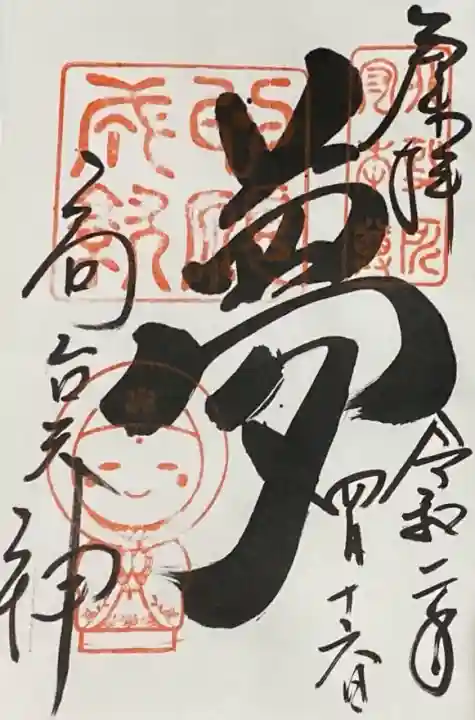 奉拝
令和二年
四月十六日
夢
高台天神